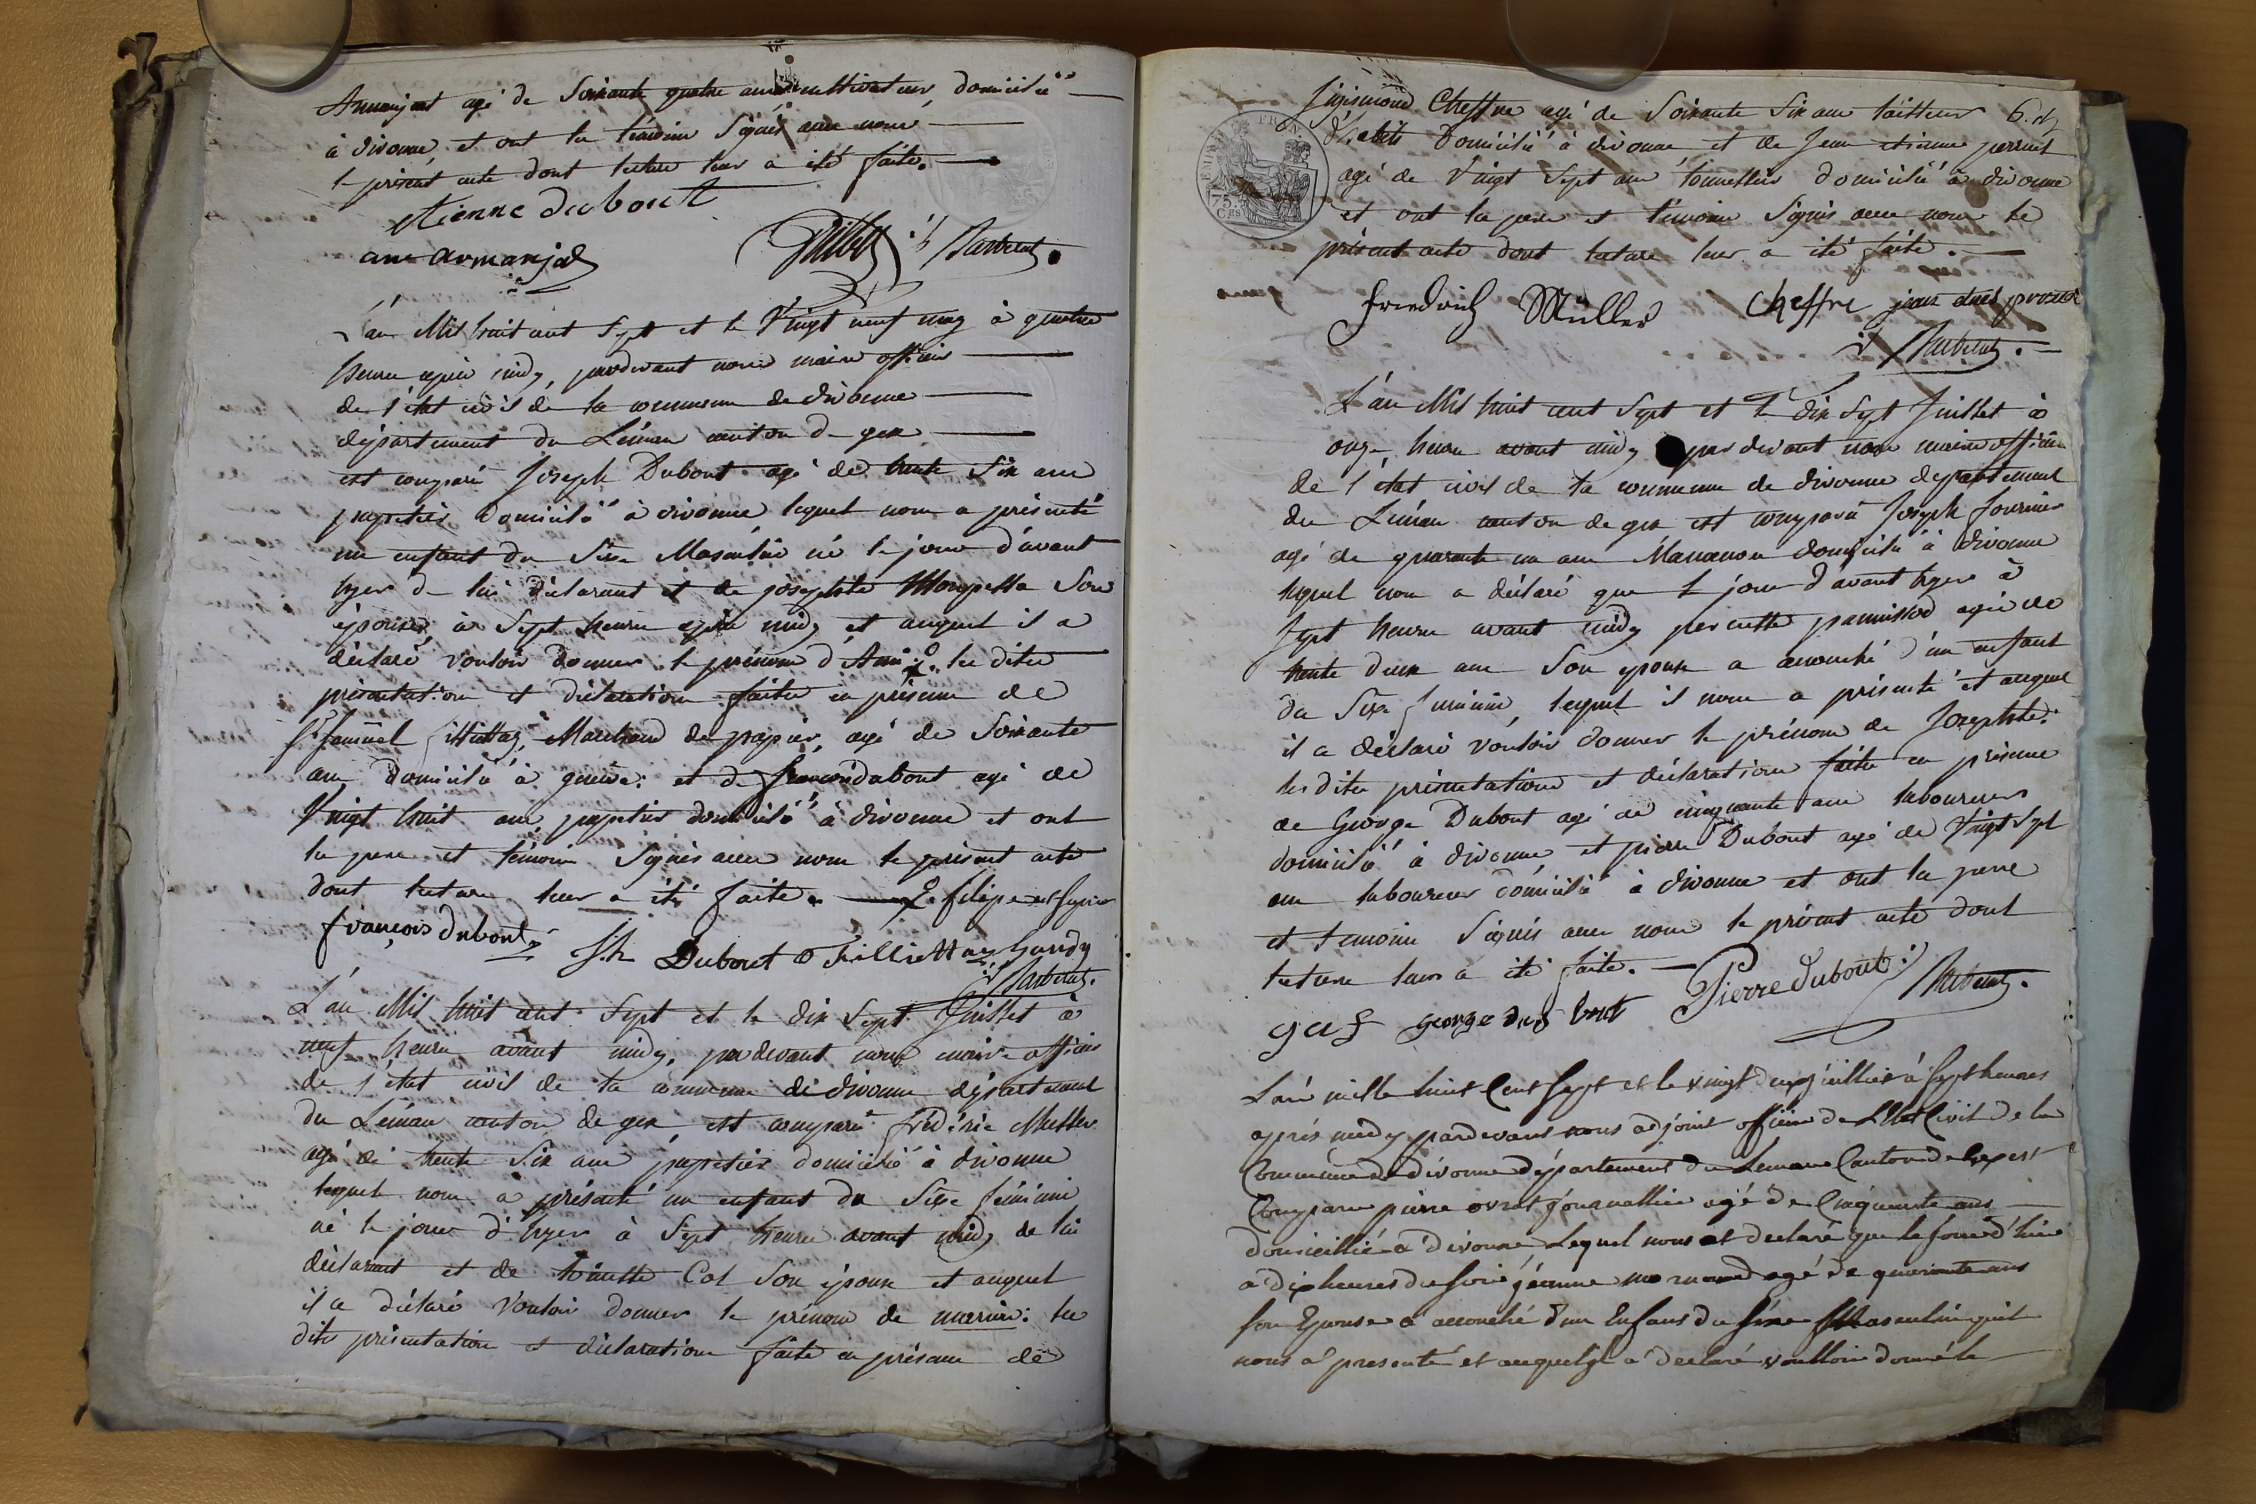 Armanjat agé de Soixante quatre ans cultivateur, domicilié
à divonne, et ont les témoins Signés avec nous
le présent acte dont lecture leur a été faite.
etienne dubout
ame armanjat
Pillet Barberat.
L'an Mil huit cent Sept et le Vingt neuf may à quatre
heures après midy, pardevant nous maire officier
de l'état civil de la commune de divonne
département du Léman canton de gex
est comparu Joseph Dubout agé de trente Six ans
papetier domicilié à divonne lequel nous a présenté
un enfant du Sexe Masculin né le jour d'avant
hyer de lui déclarant et de josephte Mompella Son
épouse, à Sept heures après midy et auquel il a
déclaré vouloir donner le prénom d'Ami. les dites
présentation et déclaration faites en présence de
Samuel fillettaz, Marchand de papier, agé de Soixante
ans domicilié à genève: et de françois dubout agé de
Vingt huit ans, papetier domicilié à divonne et ont
les pere et témoins Signés avec nous le présent acte
dont lecture leur a été faite.
françois dubout
Jh Dubout Fillietaz Gandy
Barberat.
L'an Mil huit cent Sept et le dix Sept Juillet à
neuf heures avant midy, pardevant nous maire officier
de l'état civil de la commune de divonne département
du Léman canton de gex est comparu frédéric Muller
agé de trente Six ans papetier domicilié à divonne
lequel nous a présenté un enfant du Sexe féminin
né le jour d'hyer à Sept heures avant midy de lui
déclarant et de toinette Cat Son épouse et auquel
il a déclaré vouloir donner le prénom de marie: les
dites présentation et déclaration faite en présence de
Sigismond Cheffre agé de Soixante Six ans tailleur
d'habits domicilié à divonne et de Jean etienne
agé de Vingt Sept ans tonnellier domicilié à divonne
et ont les pere et témoins Signés avec nous le
présent acte dont lecture leur a été faite.
75. Ces
Friedrich Müller cheffre
Barberat.
L'an Mil huit cent Sept et le dix Sept Juillet à
onze heures avant midy pardevant nous maire officier
de l'état civil de la commune de divonne département
du Léman canton de gex est comparu Joseph fournier
agé de quarante un ans domicilié à divonne
lequel nous a déclaré que le jour d'avant hyer à
Sept heures avant midy pernette agée de
trente deux ans Son epouse a accouché d'un enfant
du Sexe féminin, lequel il nous a présenté et auquel
il a déclaré vouloir donner le prénom de Josephte:
les dites présentation et déclaration faite en présence
de George Dubout agé de cinquante ans laboureur
domicilié à divonne et pierre Dubout agé de Vingt Sept
ans laboureur domicilié à divonne et ont les pere
et temoins Signés avec nous le présent acte dont
lecture leur a été faite.
Pierre dubout Barberat.
george du bout
L'an mille huit Cent Sept et le vingt deux jeuillier à Sept heures
après midy pardevant nous adjoint officier de L'état Civil de la
Commune de divonne département du Leman Canton de Gex est
Comparu pierre journallier agé de Cinquante ans
domicillié à divonne Lequel nous at declaré que le jour d'hier
a dix heures du soir jeanne agé de quarante ans
son Epouse a accouché d'un Enfans du sexe Masculin quil
nous a presenté et auquel il a declaré voulloir donné le